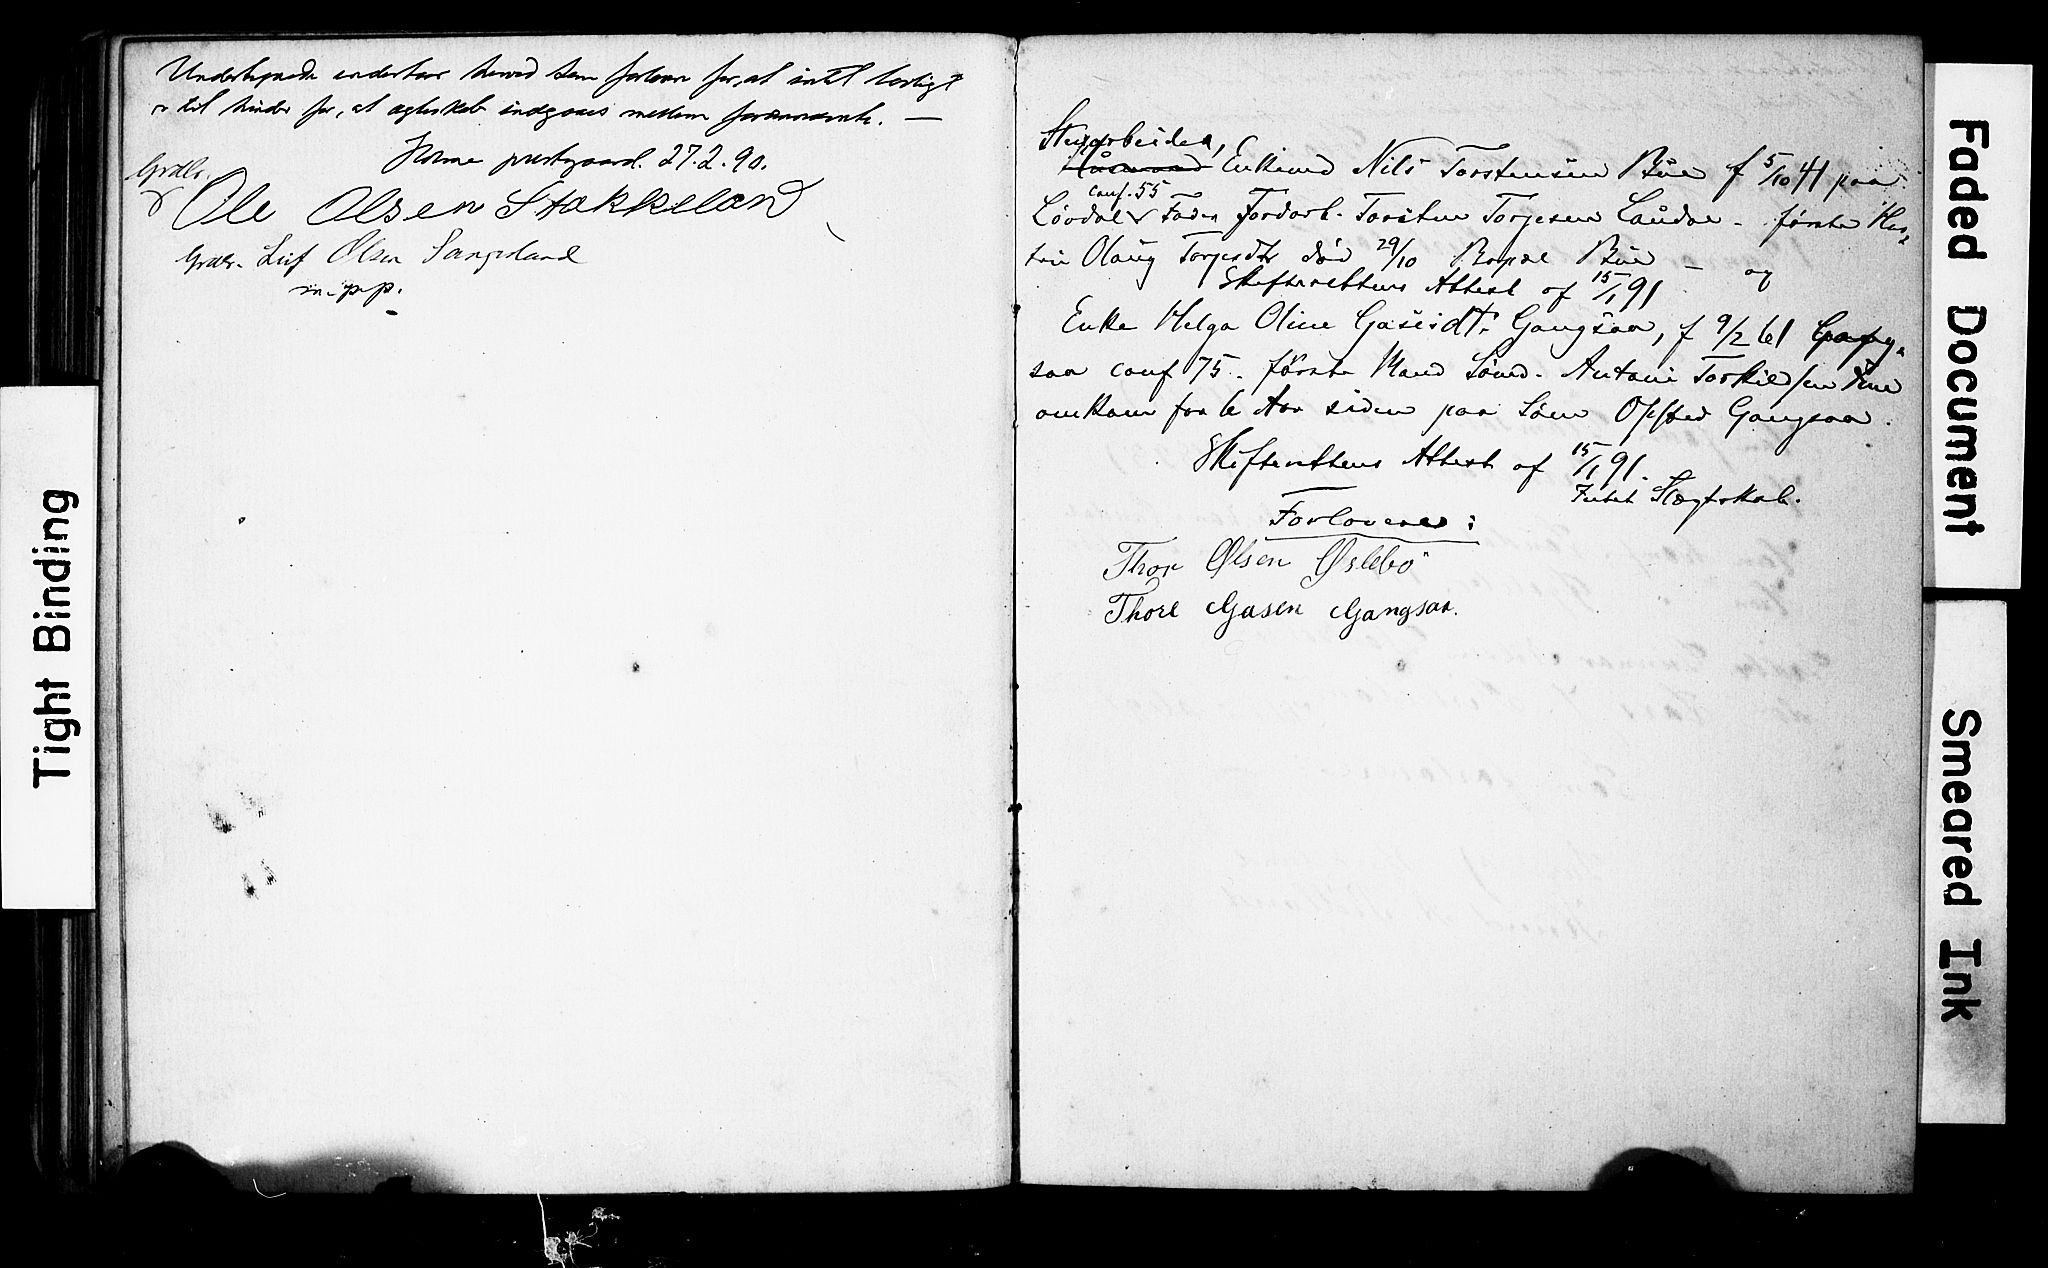 Undertegnede indestaar herved som forlover for, at intet lovligt
er til hinder for, at ægteskab indgaaes mellem forannævnte. —
Holme prestegaard. 27.2.90.
Grdbr.
Ole Olsen Stakkeland
Grdbr. Leif Olsen Sangesland
m.p.p.
Arbeider,
Enkemd Nils Torstensen Bue f 5/10 41 paa
conf. 55
Løvdal Fader Jordarb. Torsten Torjesen Laudal - første Hus-
tru Olaug Torjesdtr død 29/10 Bopæl Bue - og
Skifterettens Attest af 15/1 91
Enke Helga Oline Gasesdt. Gangsaa, f 9/2 61 Gang-
saa conf 75. første Mand Sømd. Antoni Torkildsen
omkom for 6 Aar siden paa Søen Opsted Gangsaa.
Skifterettens Attest af 15/1 91.
Intet Slægtskab.
Forlovere:
Thor Olsen Øslebö
Thore Gasen Gangsaa.
Tight Binding
Faded Document
Smeared Ink